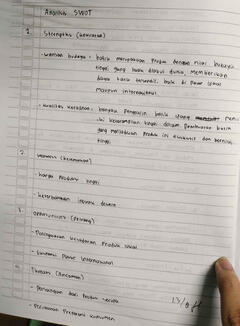 Analisis SWOT
1. Strengths (kekuatan)
- warisan budaya : batik merupakan Produk dengan nilai budaya
tinggi yang telah diakui dunia, memberikan
daya tarik tersendiri baik di Pasar lokal
maupun internasional.
- kualitas kerajinan : banyak Pengrajin batik yang memi-
liki keterampilan tinggi dalam pembuatan batik
yang menjadikan produk ini eksklusif dan bernilai
tinggi.
2. (kelemahan)
- harga Produksi tinggi
- keterbatasan inovasi desain
3. (Peluang)
- Peningkatan kesadaran Produk lokal
- Pasar Internasional
4. Threats (Ancaman)
- Persaingan dari Produk
- Perubahan Preferensi konsumen